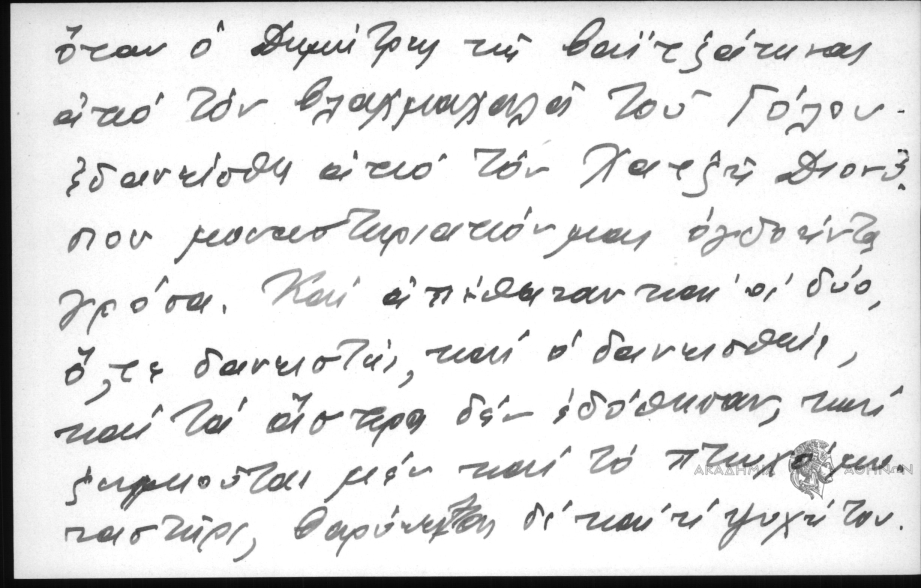 ὅταν ὁ Δημήτρης τῆς Βαϊτζάταινας
ἀπό τόν βλαχμαχαλᾶ τοῦ Γόλου
ἐδανείσθη ἀπό τόν Χατζῆ Διονύ-
σιου μοναστηριακόν μας ὀγδοήντα
γρόσα. Καί ἀπέθαναν καί οἱ δύο,
ὅ,τε δανειστής, καί ὁ δανεισθείς,
καί τά ἄσπρα δέν ἐδόθησαν, καί
ζημιοῦται μέν καί τό πτωχό μο-
ναστήρι, βαρύνεται δέ καί ἡ ψυχή του.
ΑΚΑΔΗΜΙΑ ΑΘΗΝΩΝ